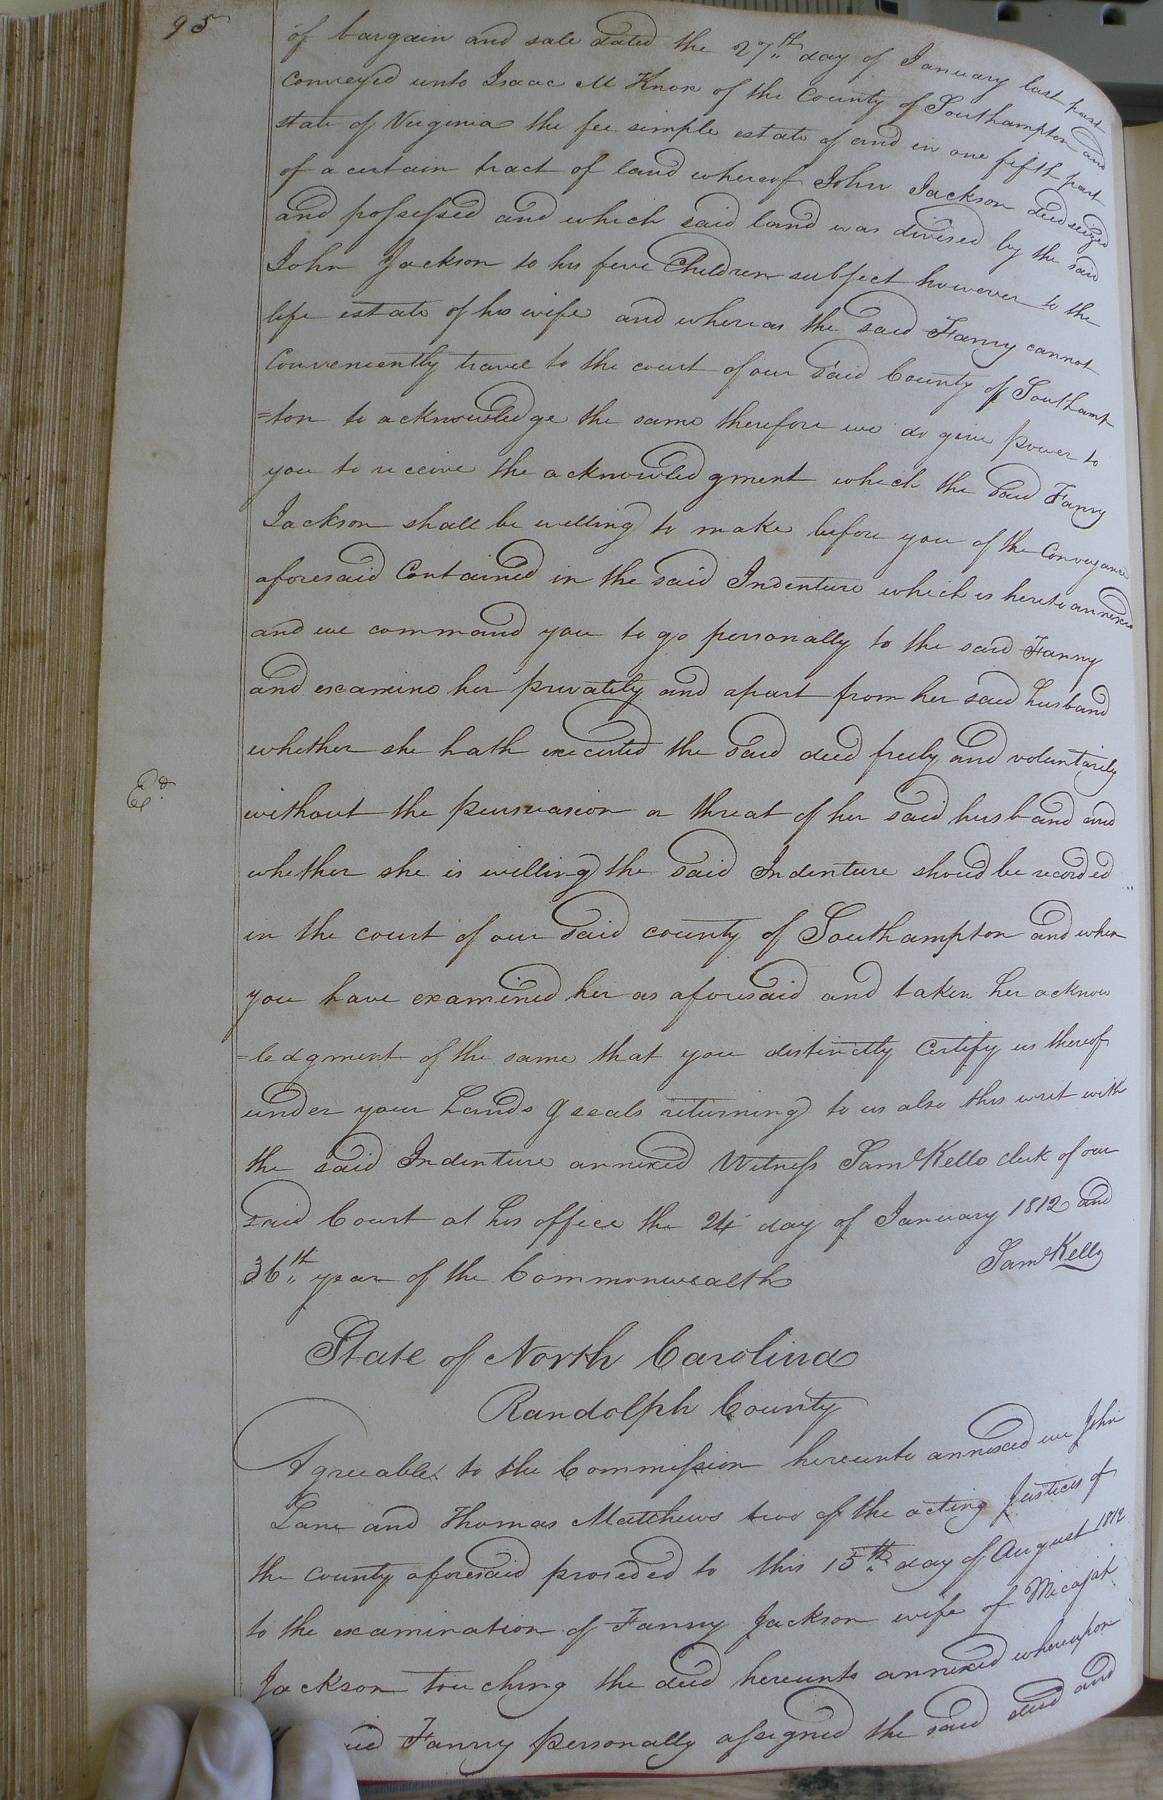 95
of bargain and sale dated the 27th day of January last past
conveyed unto Isaac M Knox of the County of Southampton and
state of Virginia the fee simple estate of and in one fifth part
of a certain tract of land whereof John Jackson died seized
and possessed and which said land was divised by the said
John Jackson to his five Children subject however to the
life estate of his wife and whereas the said Fanny cannot
Conveniently travel to the court of our said County of Southamp
=ton to acknowledge the same therefore we do give power to
you to receive the acknowledgment which the said Fanny
Jackson shall be willing to make before you of the Conveyance
aforesaid Contained in the said Indenture which is hereto annexed
and we command you to go personally to the said Fanny
and examine her privately and apart from her said husband
whether she hath executed the said deed freely and voluntarily
Ed.
without the persuasion or threat of her said husband and
whether she is willing the said Indenture should be recorded
in the court of our said county of Southampton and when
you have examined her as aforesaid and taken her acknow
=ledgment of the same that you distinctly Certify us thereof
under your hands & seals returning to us also this writ with
the said Indenture annexed Witness Saml Kello clerk of our
said Court at his office the 24 day of January 1812 and
36th year of the Commonwealth Saml Kello
State of North Carolina
Randolph County
Agreeable to the Commission hereunto annexed we John
Lane and Thomas Matthews two of the acting Justices of
the county aforesaid proseded to this 15th day of August 1812
to the examination of Fanny Jackson wife of Micajah
Jackson touching the deed hereunto annexed whereupon
Fanny personally assigned the said deed and